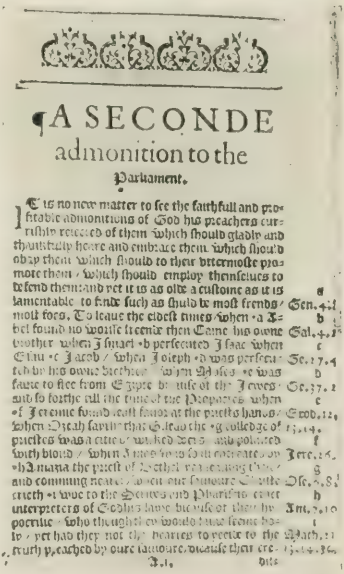 ¶A SECONDE
admonition to the
Parliament.
IT is no new matter to see the faithfull and pro-
fitable admonitions of God his preachers cur-
rishly rejected of them which should gladly and
thankfully heare and embrace them which should
obey them which should to their vttermoste pro-
mote them / which should employ themselues to
defend them: and yet it is as olde a custome as it is
lamentable to finde such as shuld be most frends / Gen.4.
most foes. To leaue the eldest times / when a A-
bel found no worse frende then Caine his owne Gal.4.
brother when Ismael b persecuted Isaac when
Esau c Jacob / when Joseph d was persecu- Ge.27.4
ted by his owne brethren / when Moses e was
faine to flee from Egipte of the Jewes Ge.37.
and so forthe all the time of the Prophetes when
f Jeremie found at the priests hands / Exod.
when Ozeah saythe that g colledge of
priestes was a citie of wicked and polluted
with bloud / when Jere.26.
h Amazia the priest of Bethel
and comming when our sauioure Christe Ose.6.8
crieth i woe to the Scribes and Pharises
interpreters of Gods lawe of their hy- Am.7.10
pocrisie / who thought
ly / yet had they not the heartes to the Math.
truth preached by oure sauioure, because their cre-
A.i.